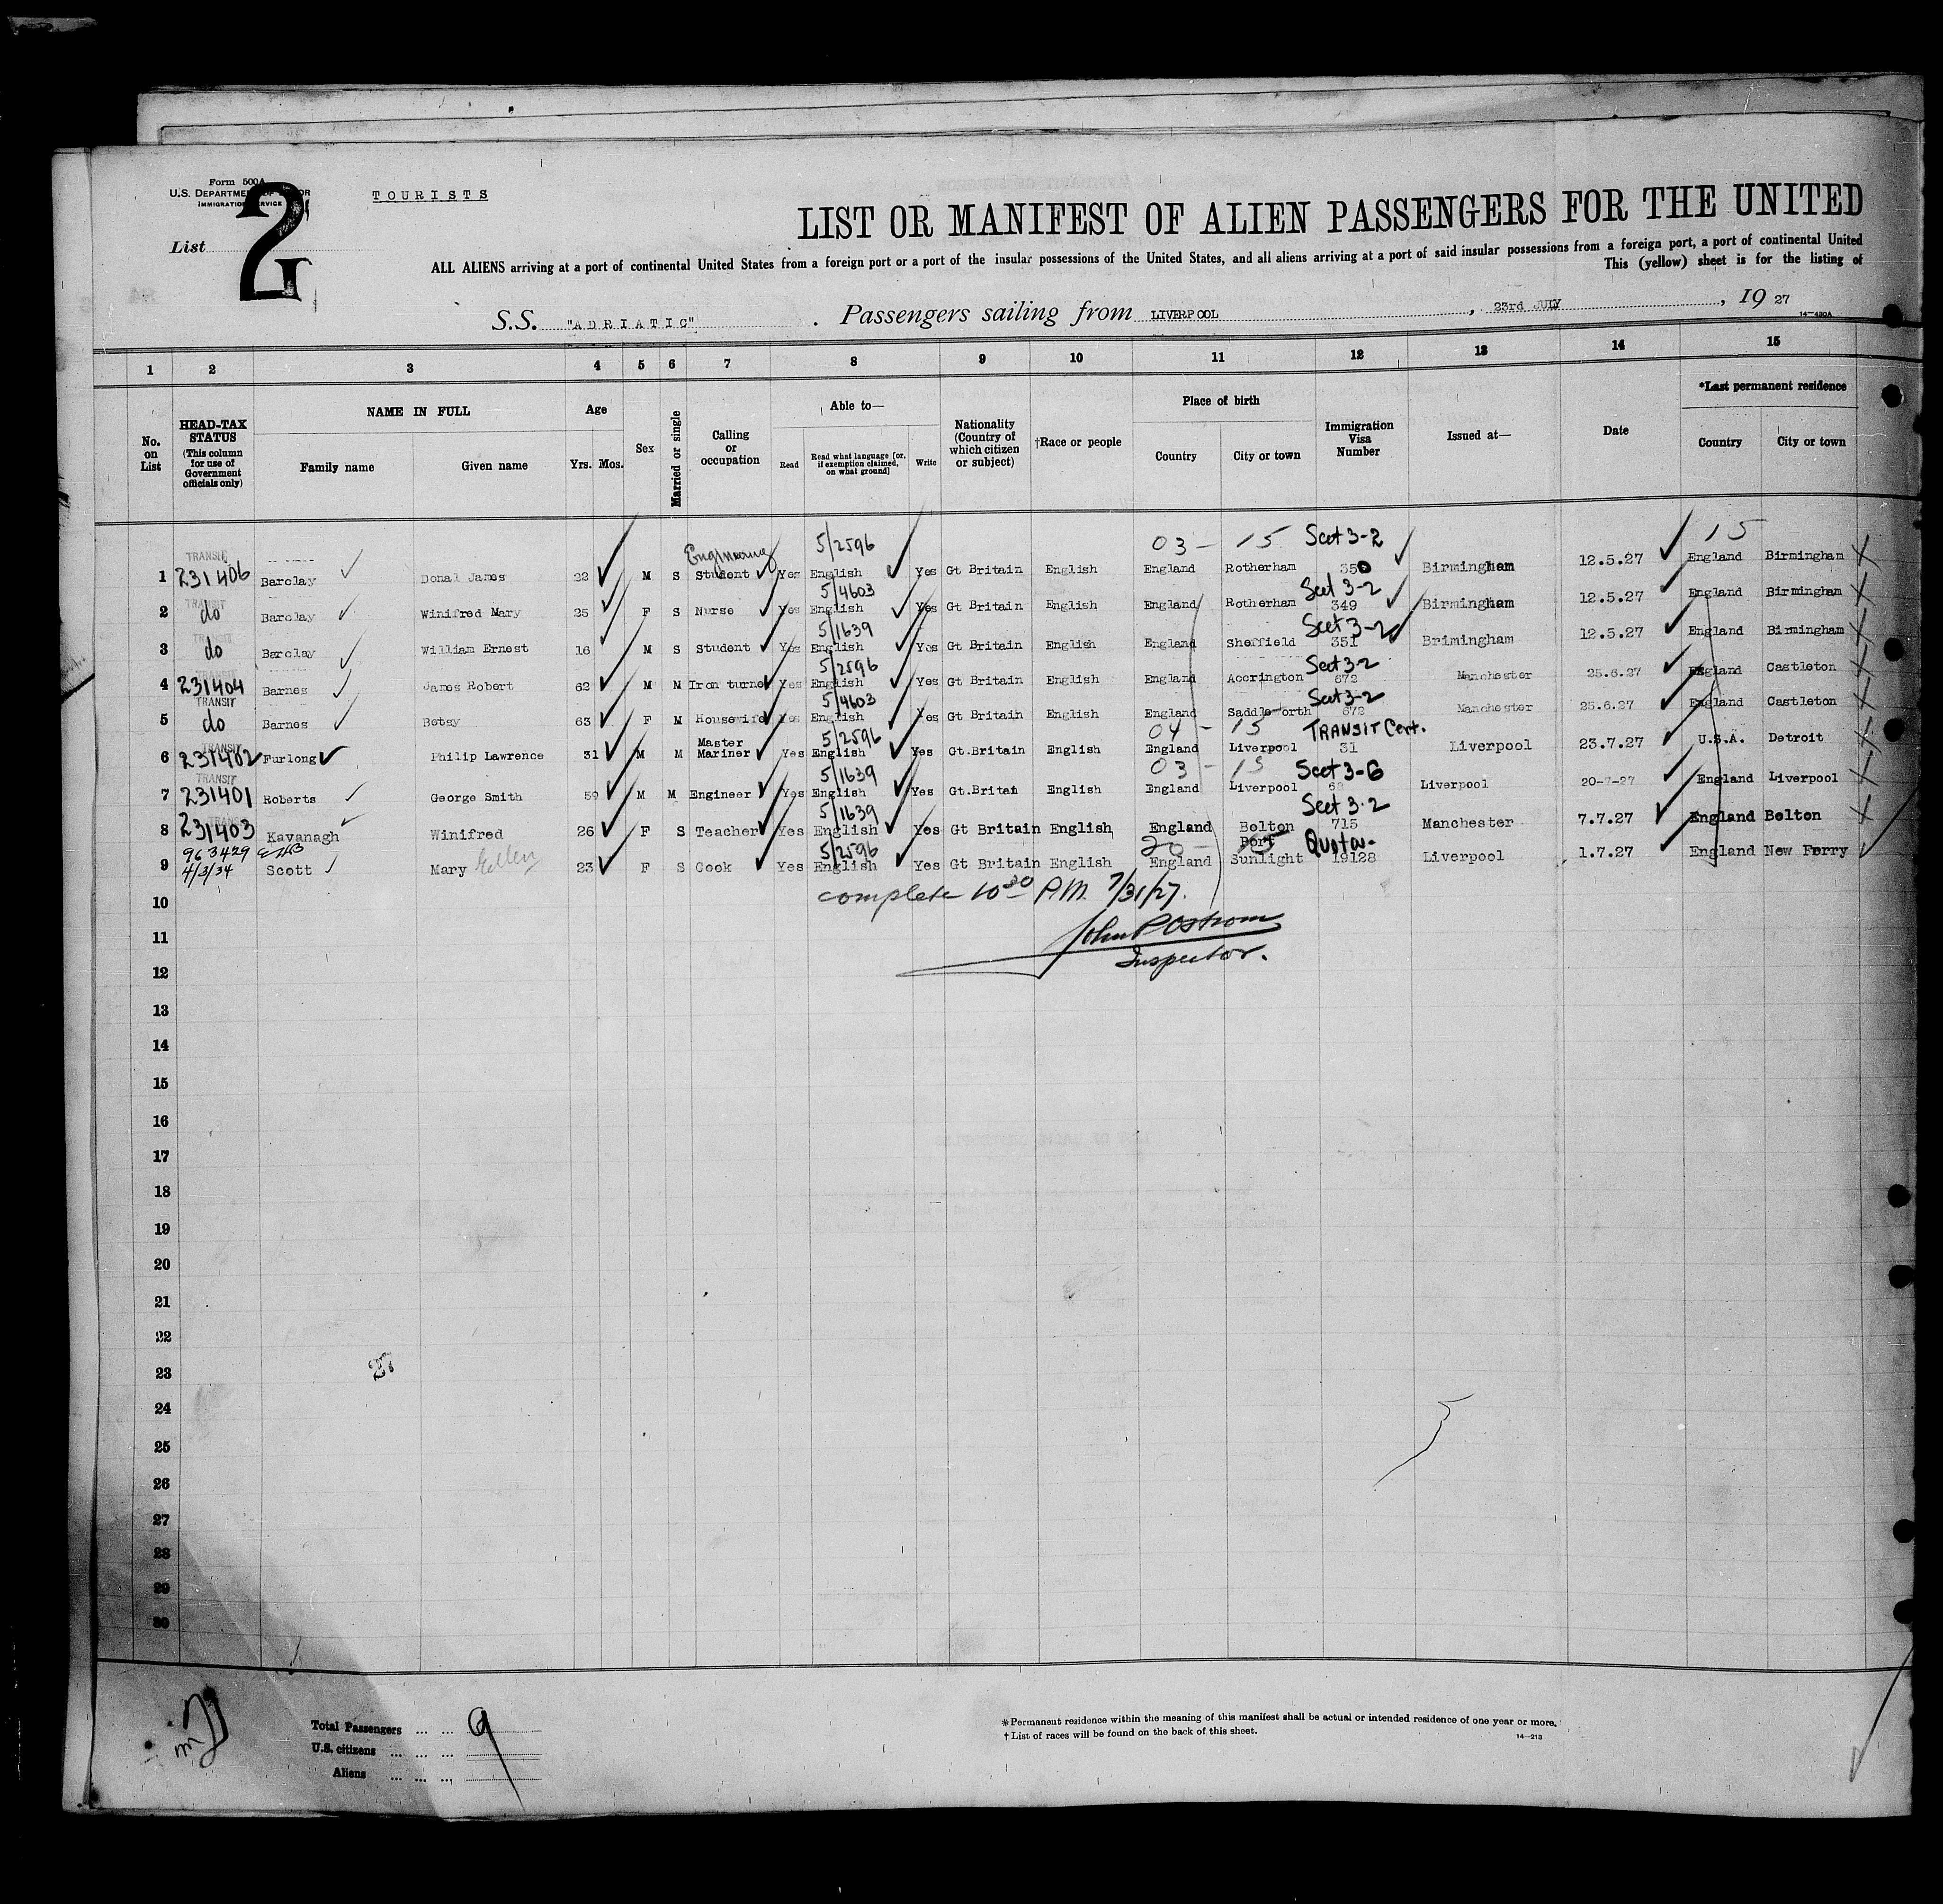 Form 500A
U.S. DEPARTMENT OF LABOR
IMMIGRATION SERVICE
TOURISTS
List 2
LIST OR MANIFEST OF ALIEN PASSENGERS FOR THE UNITED
ALL ALIENS arriving at a port of continental United States from a foreign port or a port of the insular possessions of the United States, and all aliens arriving at a port of said insular possessions from a foreign port, a port of continental United
This (yellow) sheet is for the listing of
S.S. "ADRIATIC". Passengers sailing from LIVERPOOL, 23rd JULY, 1927
14-430A
1 2 3 4 5 6 7 8 9 10 11 12 13 14 15
No. on List
HEAD-TAX STATUS (This column for use of Government officials only)
NAME IN FULL
Family name Given name
Age
Yrs. Mos.
Sex
Married or single
Calling or occupation
Able to—
Read Read what language [or, if exemption claimed, on what ground] Write
Nationality (Country of which citizen or subject)
†Race or people
Place of birth
Country City or town
Immigration Visa Number
Issued at—
Date
*Last permanent residence
Country City or town
TRANSIT Engineering 5/2596 03 - 15 Sect 3-2 15
1 231406 Barclay Donal James 22 M S Student Yes English Yes Gt Britain English England Rotherham 350 Birmingham 12.5.27 England Birmingham
TRANSIT 5/4603 Sect 3-2
2 do Barclay Winifred Mary 25 F S Nurse Yes English Yes Gt Britain English England Rotherham 349 Birmingham 12.5.27 England Birmingham
TRANSIT 5/1639 Sect 3-2
3 do Barclay William Ernest 16 M S Student Yes English Yes Gt Britain English England Sheffield 351 Brimingham 12.5.27 England Birmingham
5/2596 Sect 3-2
4 231404 Barnes James Robert 62 M M Iron turner Yes English Yes Gt Britain English England Accrington 672 Manchester 25.6.27 England Castleton
TRANSIT 5/4603 Sect 3-2
5 do Barnes Betsy 63 F M Housewife Yes English Yes Gt Britain English England Saddleworth 672 Manchester 25.6.27 England Castleton
TRANSIT 5/2596 04 - 15 TRANSIT Cert.
6 231402 Furlong Philip Lawrence 31 M M Master Mariner Yes English Yes Gt.Britain English England Liverpool 31 Liverpool 23.7.27 U.S.A. Detroit
TRANSIT 5/1639 03 - 15 Sect 3-6
7 231401 Roberts George Smith 59 M M Engineer Yes English Yes Gt.Britai English England Liverpool Liverpool 20-7-27 England Liverpool
TRANS 5/1639 Sect 3-2
8 231403 Kavanagh Winifred 26 F S Teacher Yes English Yes Gt Britain English England Bolton 715 Manchester 7.7.27 England Bolton
963429 5/2596 20 - 15 Quota
9 4/3/34 Scott Mary Ellen 23 F S Cook Yes English Yes Gt Britain English England Port Sunlight 19128 Liverpool 1.7.27 England New Ferry
complete 10 30 P.M. 7/31/27.
10
John P Ostrom
11
Inspector.
12
13
14
15
16
17
18
19
20
21
22
23
24
25
26
27
28
29
30
Total Passengers ... ... 9
U.S. citizens ... ... ...
Aliens ... ... ...
*Permanent residence within the meaning of this manifest shall be actual or intended residence of one year or more.
†List of races will be found on the back of this sheet.
14-213